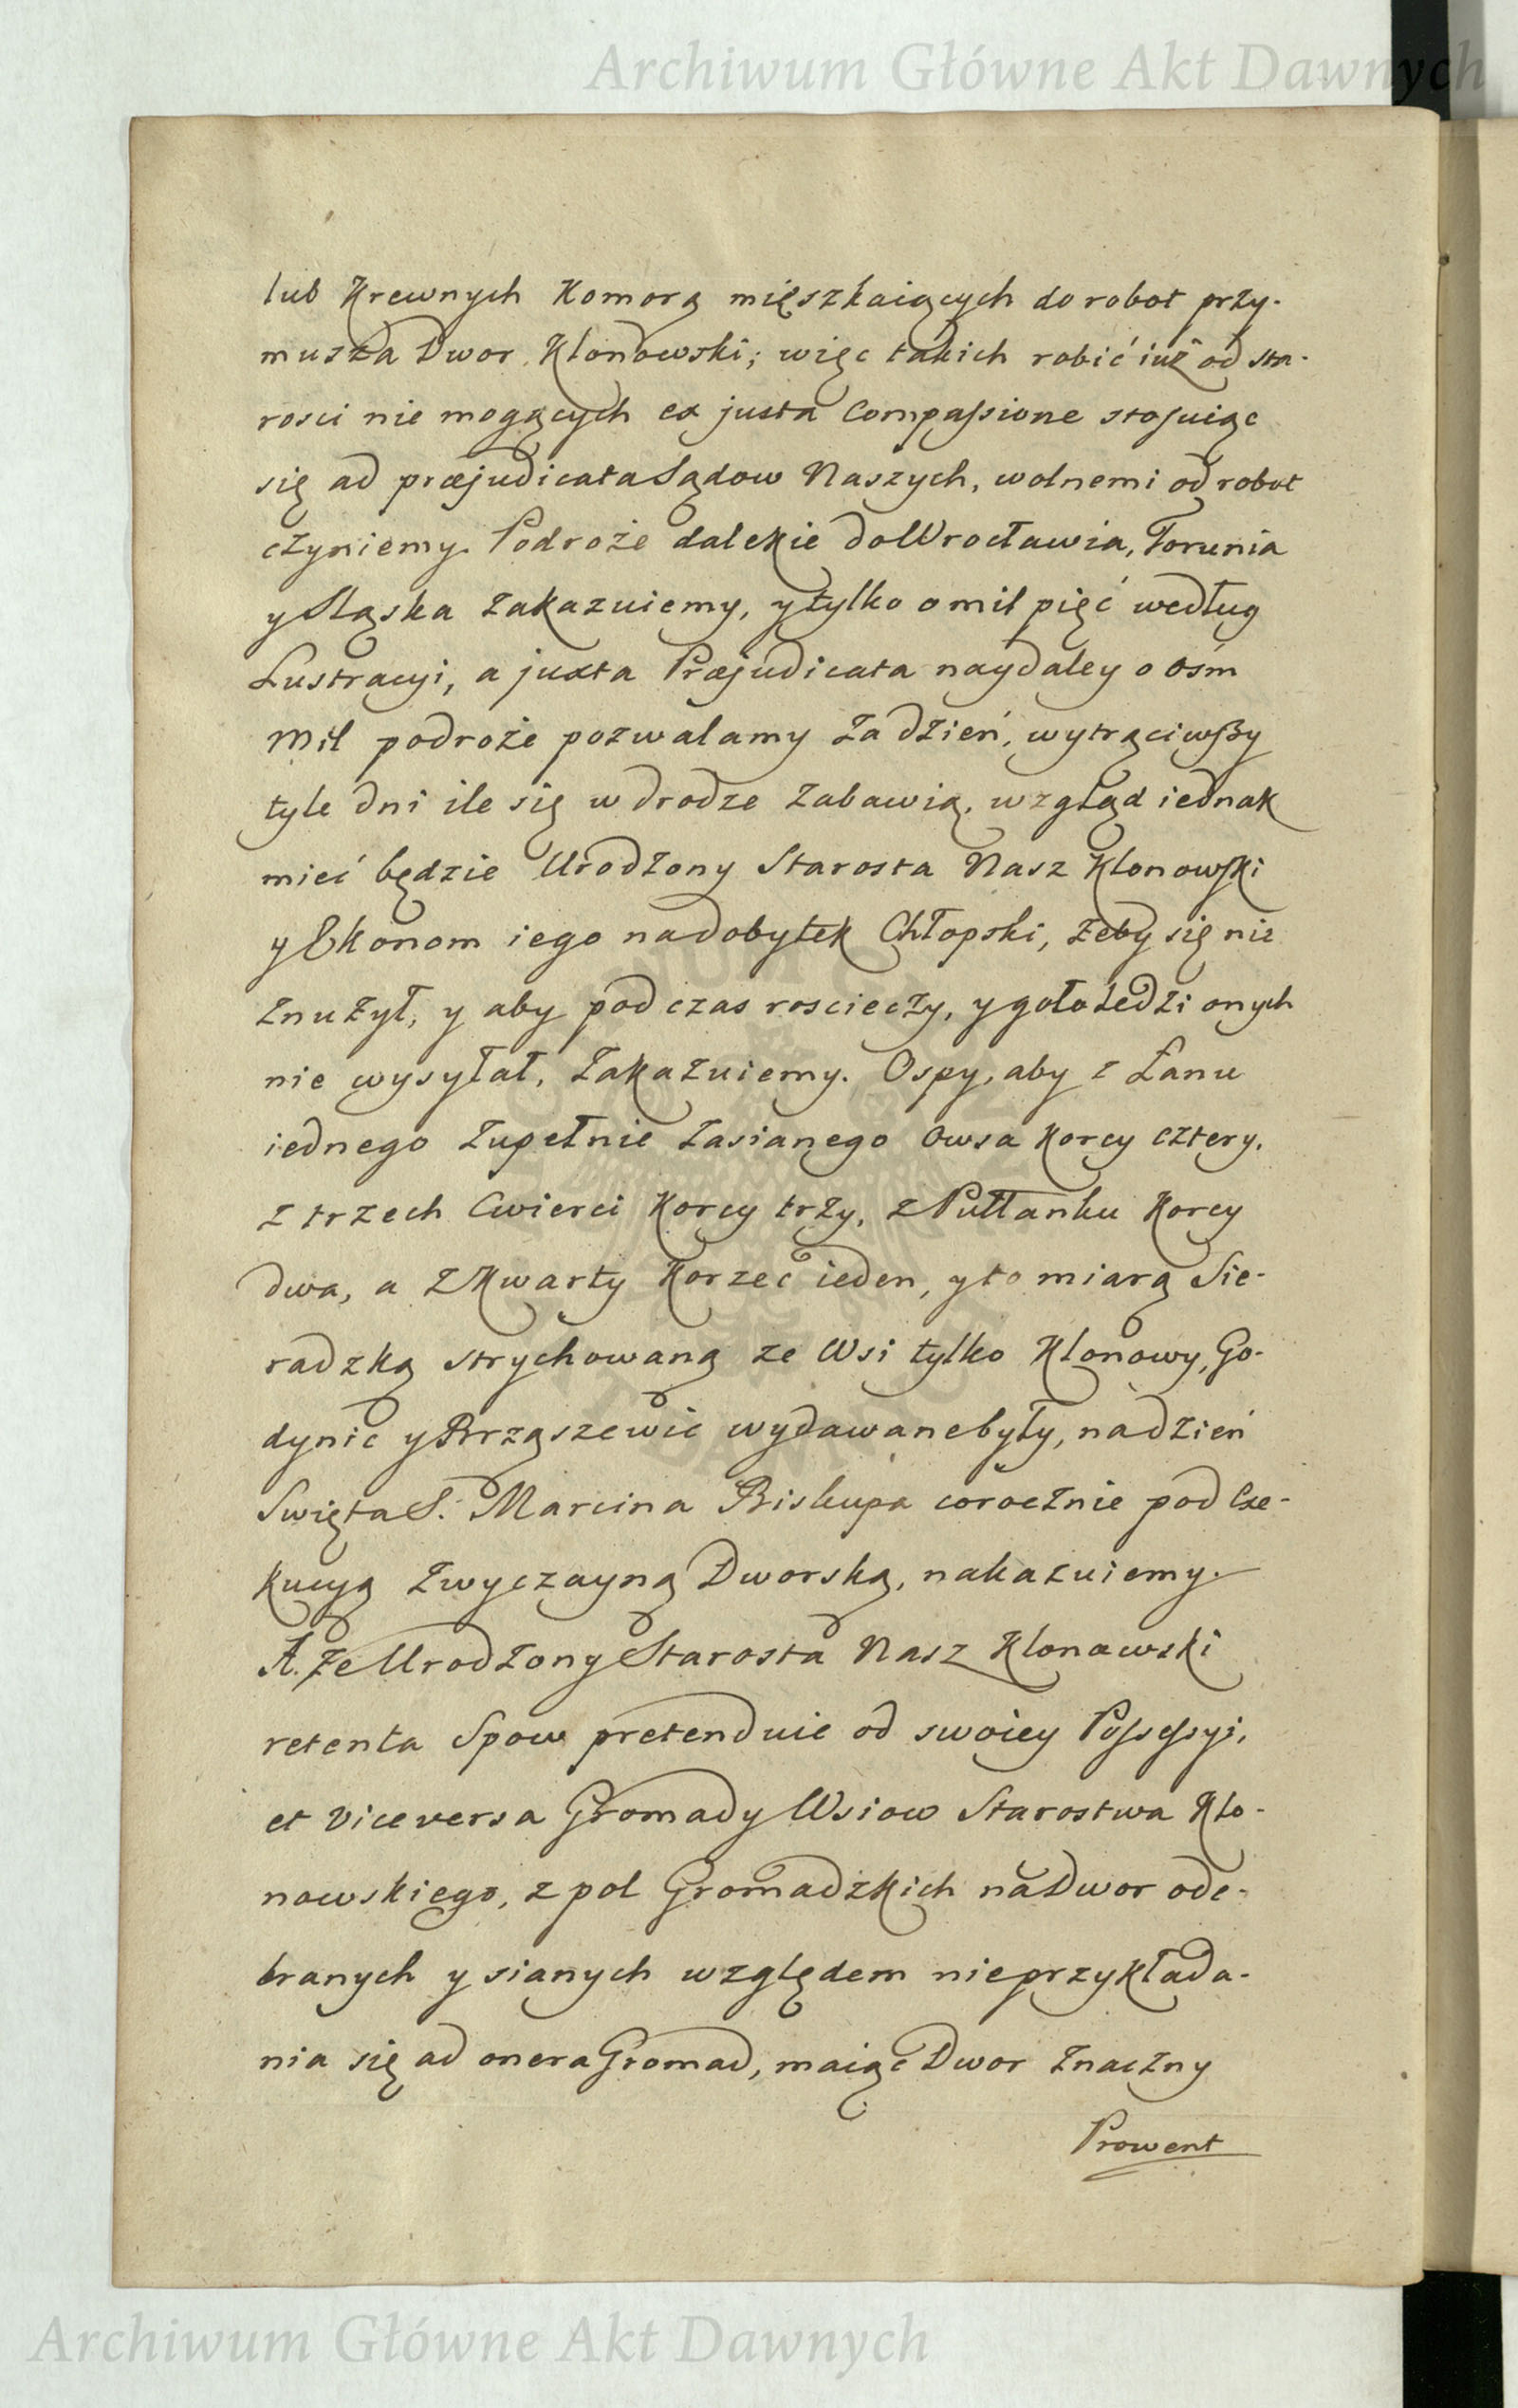 Archiwum Główne Akt Dawnych
lub Krewnych Komorą mięszkaiących do robot przy-
musza Dwor Klonowski; więc takich robić iuż od sta-
rosci nie mogących ex justa Compassione stosuiąc
się ad præjudicata Sądow Naszych, wolnemi od robot
czyniemy. Podroże dalekie do Wrocławia, Torunia
y Sląska zakazuiemy, y tylko o mil pięć według
Lustracyi, a juxta Præjudicata naydaley o ośm
Mil podroże pozwalamy za dzień, wytrąciwszy
tyle dni ile się w drodze zabawią, wzgląd iednak
mieć będzie Urodzony Starosta Nasz Klonowski
y Ekonom iego na dobytek Chłopski, żeby się nie
znużył, y aby pod czas rościeczy, y gołoledzi onych
nie wysyłał, zakazuiemy. Ospy, aby z Łanu
iednego zupełnie zasianego Owsa Korcy cztery,
z trzech Cwierci Korcy trzy, z Pułłanku Korcy
dwa, a z Kwarty Korzec ieden, y to miarą Sie-
radzką strychowaną ze Wsi tylko Klonowy, Go-
dynic y Brząszewic wydawane były, na dzień
Swięta S. Marcina Biskupa corocznie pod Exe-
kucyą zwyczayną Dworską, nakazuiemy.
A. że Urodzony Starosta Nasz Klonawski
retenta Spow pretenduie od swoiey Possessyi,
et viceversa Gromady Wsiow Starostwa Klo-
nowskiego, z pol Gromadzkich na Dwor ode-
branych y sianych względem nieprzykłada-
nia się ad onera Gromad, maiąc Dwor znaczny
Prowent
Archiwum Główne Akt Dawnych